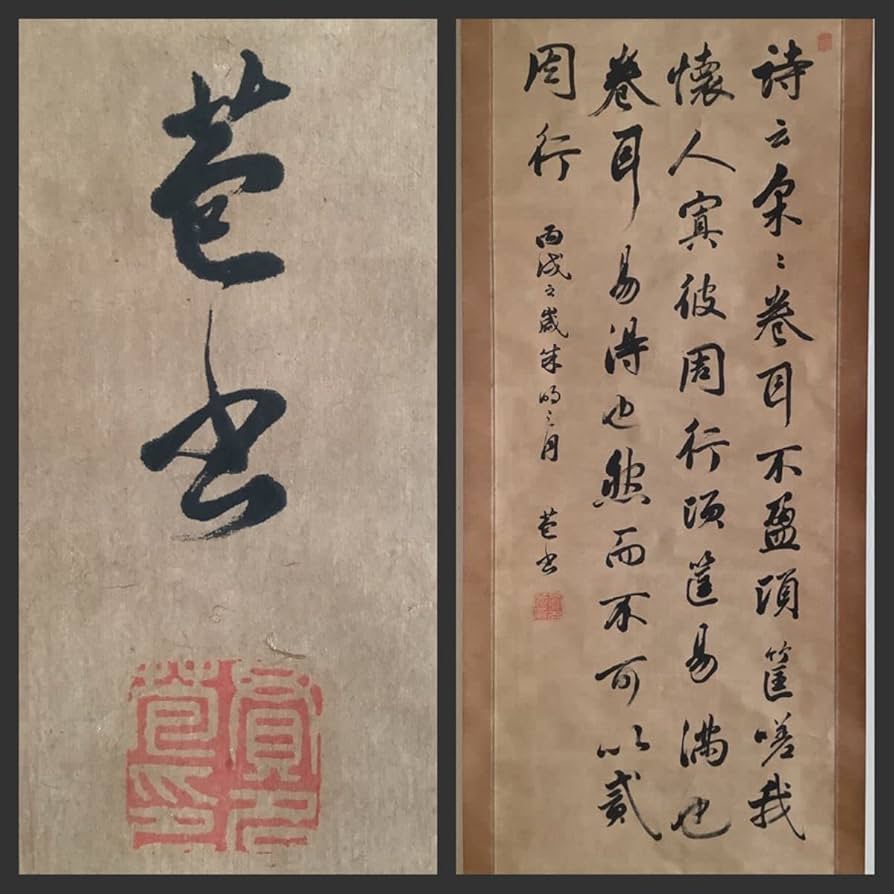 苞書
苞印
詩云采〻卷耳不盈頃筐嗟我
懷人寘彼周行頃筐易滿也
卷耳易得也然而不可以貳
周行
丙戌之歲朱明之月 苞書